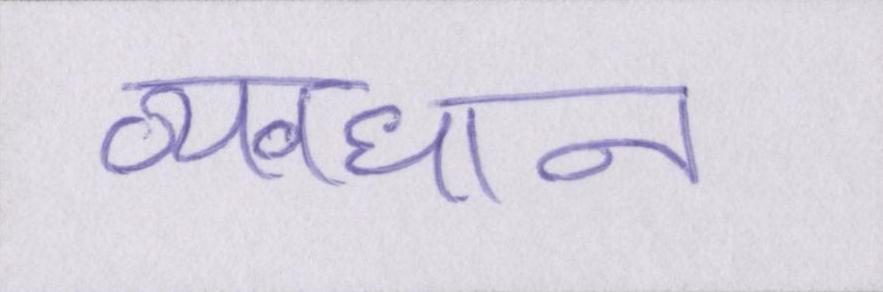 व्यवधान